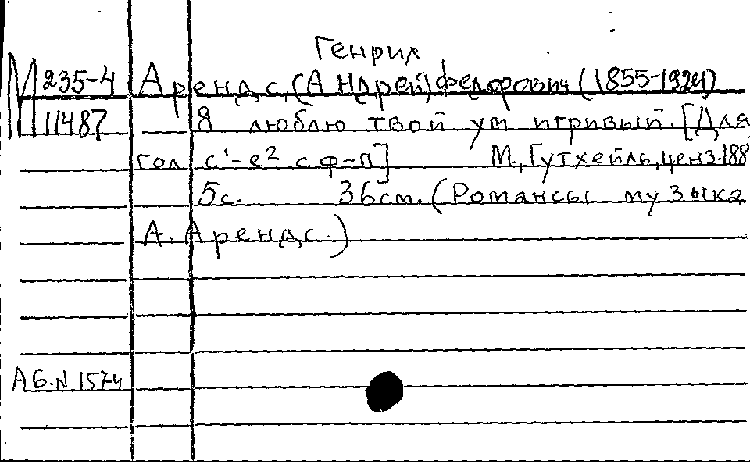 Генрих
М 235-4 Арендс, (Андрей) Федорович (1855-1924)
11487 Я люблю твой ум игривый. [Для
гол. c¹-e² с ф-п] М, Гутхейль, ценз. 188
5с. 36см. (Романсы музыка
А. Арендс.)
А 6. N. 1574